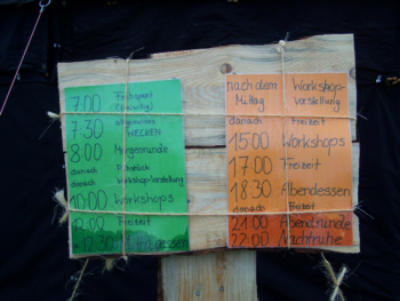 7:00 Frühsport
(freiwillig)
7:30 allgemeines
WECKEN
8:00 Morgenrunde
danach Frühstück
danach Workshop-Vorstellung
10:00 Workshops
Freizeit
12:30 Mittagessen
nach dem Workshop-
Mittag vorstellung
danach Freizeit
15:00 Workshops
17:00 Freizeit
18:30 Abendessen
danach Freizeit
21:00 Abendrunde
22:00 Nachtruhe